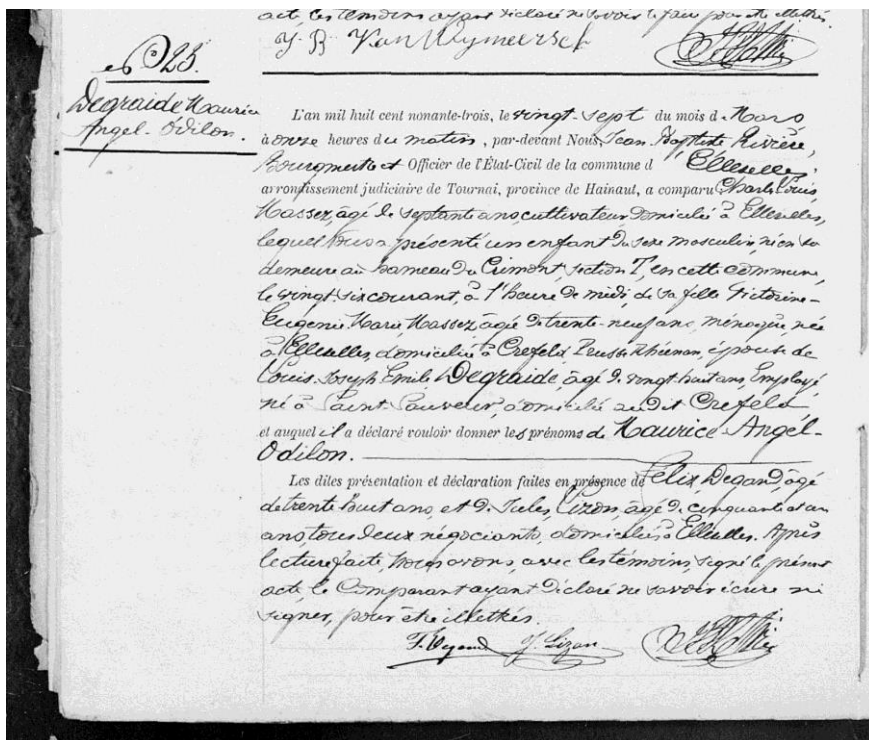 acte, les témoins ayant déclaré ne savoir le faire pour être illettrés.
J. B. Van Wymeersch
N° 25.
Degraide Maurice
Angel-Odilon.
L'an mil huit cent nonante-trois, le vingt-sept du mois d e Mars
à onze heures du matin, par-devant Nous, Jean Baptiste Rivière,
Bourgmestre et Officier de l'État-Civil de la commune d Ellezelles,
arrondissement judiciaire de Tournai, province de Hainaut, a comparu Charles Louis,
Massez, âgé de septante ans, cultivateur, domicilié à Ellezelles,
lequel nous a présenté un enfant du sexe masculin, né en sa
demeure au hameau du Crimont, section T, en cette commune,
le vingt-six courant, à l'heure de midi, de sa fille Victorine-
Eugenie Marie Massez, âgée de trente-neuf ans, ménagère, née
à Ellezelles, domiciliée à Crefeld, épouse de
Louis Joseph Emile Degraide, âgé de vingt-huit ans, Employé,
né à Saint-Sauveur, domicilié audit Crefeld
et auquel il a déclaré vouloir donner les prénoms de Maurice-Angel-
Odilon.
Les dites présentation et déclaration faites en présence de Félix Degand, âgé
de trente huit ans, et de Jules Lizon, âgé de cinquante et un
ans, tous deux négociants, domiciliés à Ellezelles. Après
lecture faite, nous avons, avec les témoins, signé le présent
acte, le Comparant ayant déclaré ne savoir écrire ni
signer, pour être illettrés.
F. Degand J. Lizon